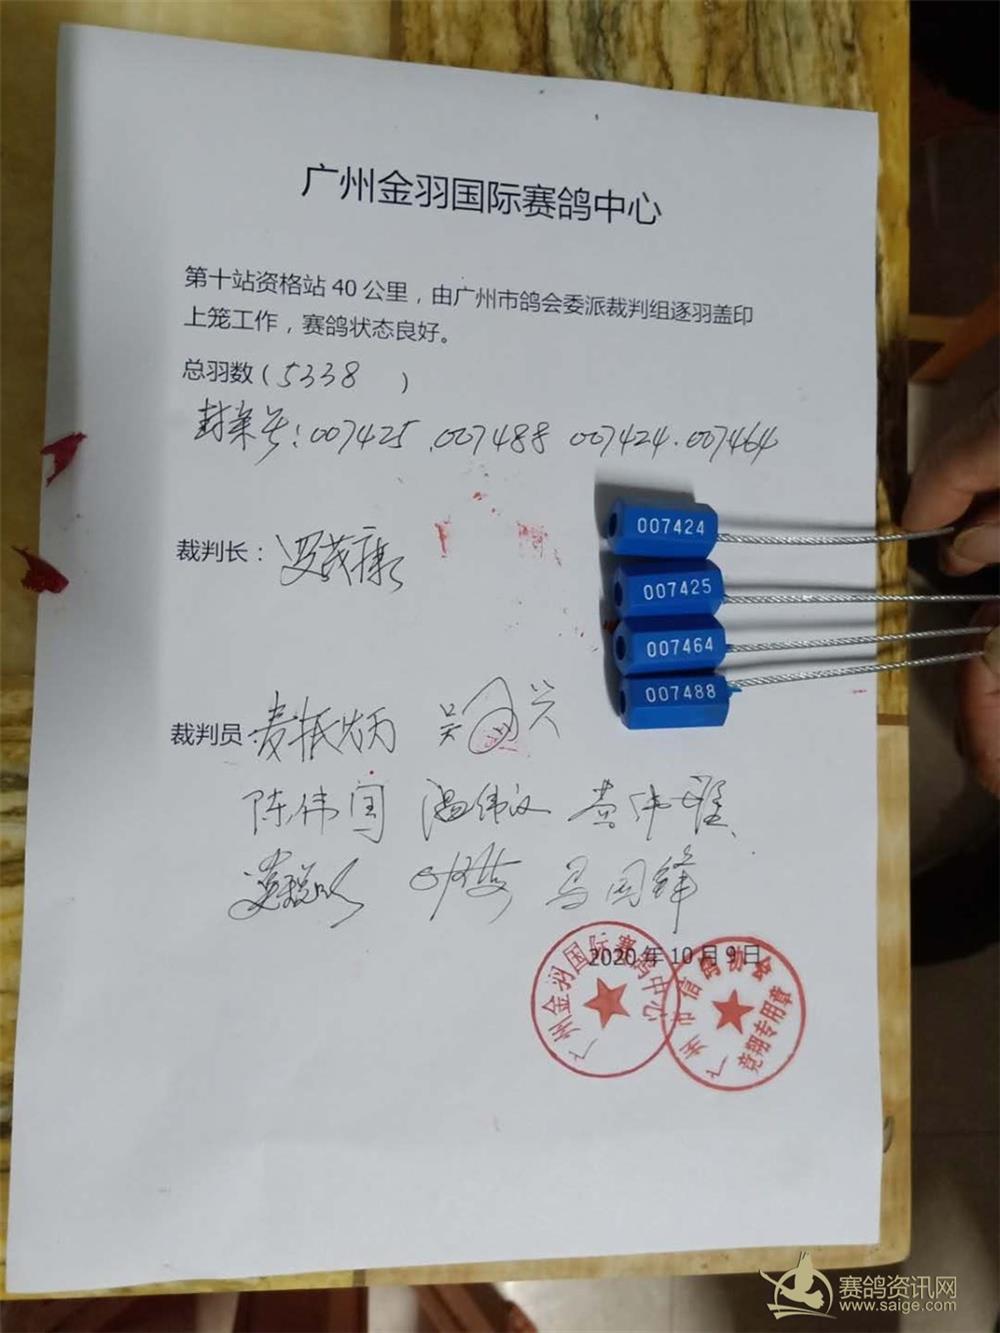 广州金羽国际赛鸽中心
第十站资格站 40 公里，由广州市鸽会委派裁判组逐羽盖印
上笼工作，赛鸽状态良好。
总羽数（5338 ）
封条号：007425 .007488 007424.007464
007424
007425
007464
007488
裁判长：
裁判员: 吴国兴
陈伟国 温伟汉 黄伟雄
马国锋
2020 年 10 月 9 日
广州金羽国际赛鸽中心
广州市信鸽协会
竞翔专用章
赛鸽资讯网
www.saige.com